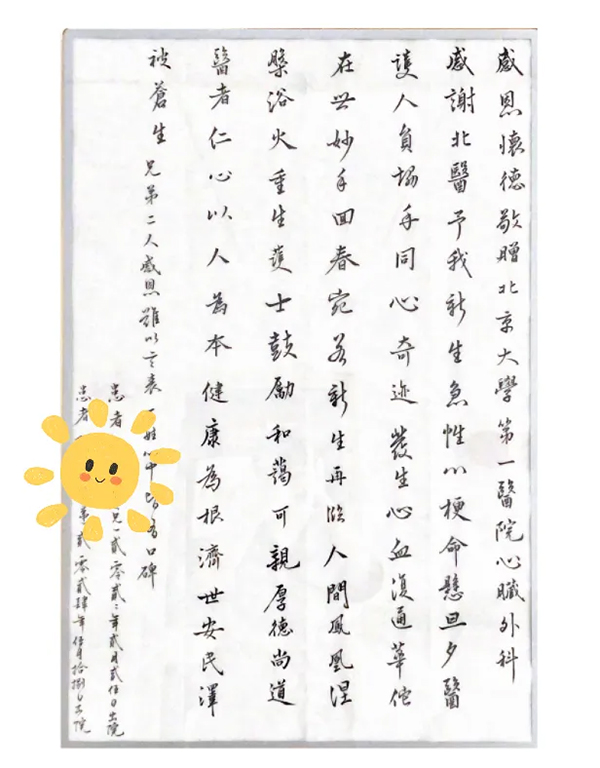 感恩懷德敬贈北京大學第一醫院心臟外科
感謝北醫予我新生急性心梗命懸旦夕醫
護人員手同心奇迹發生心血復通華佗
在世妙手回春宛若新生再臨人間鳳凰涅
槃浴火重生護士鼓勵和藹可親厚德尚道
醫者仁心以人為本健康為根濟世安民澤
被蒼生 兄弟二人感恩難以言表 姓心中 口碑
患者 兄 貳零貳二年貳月貳伍日出院
患者 弟 貳零貳肆年伍月拾捌日出院